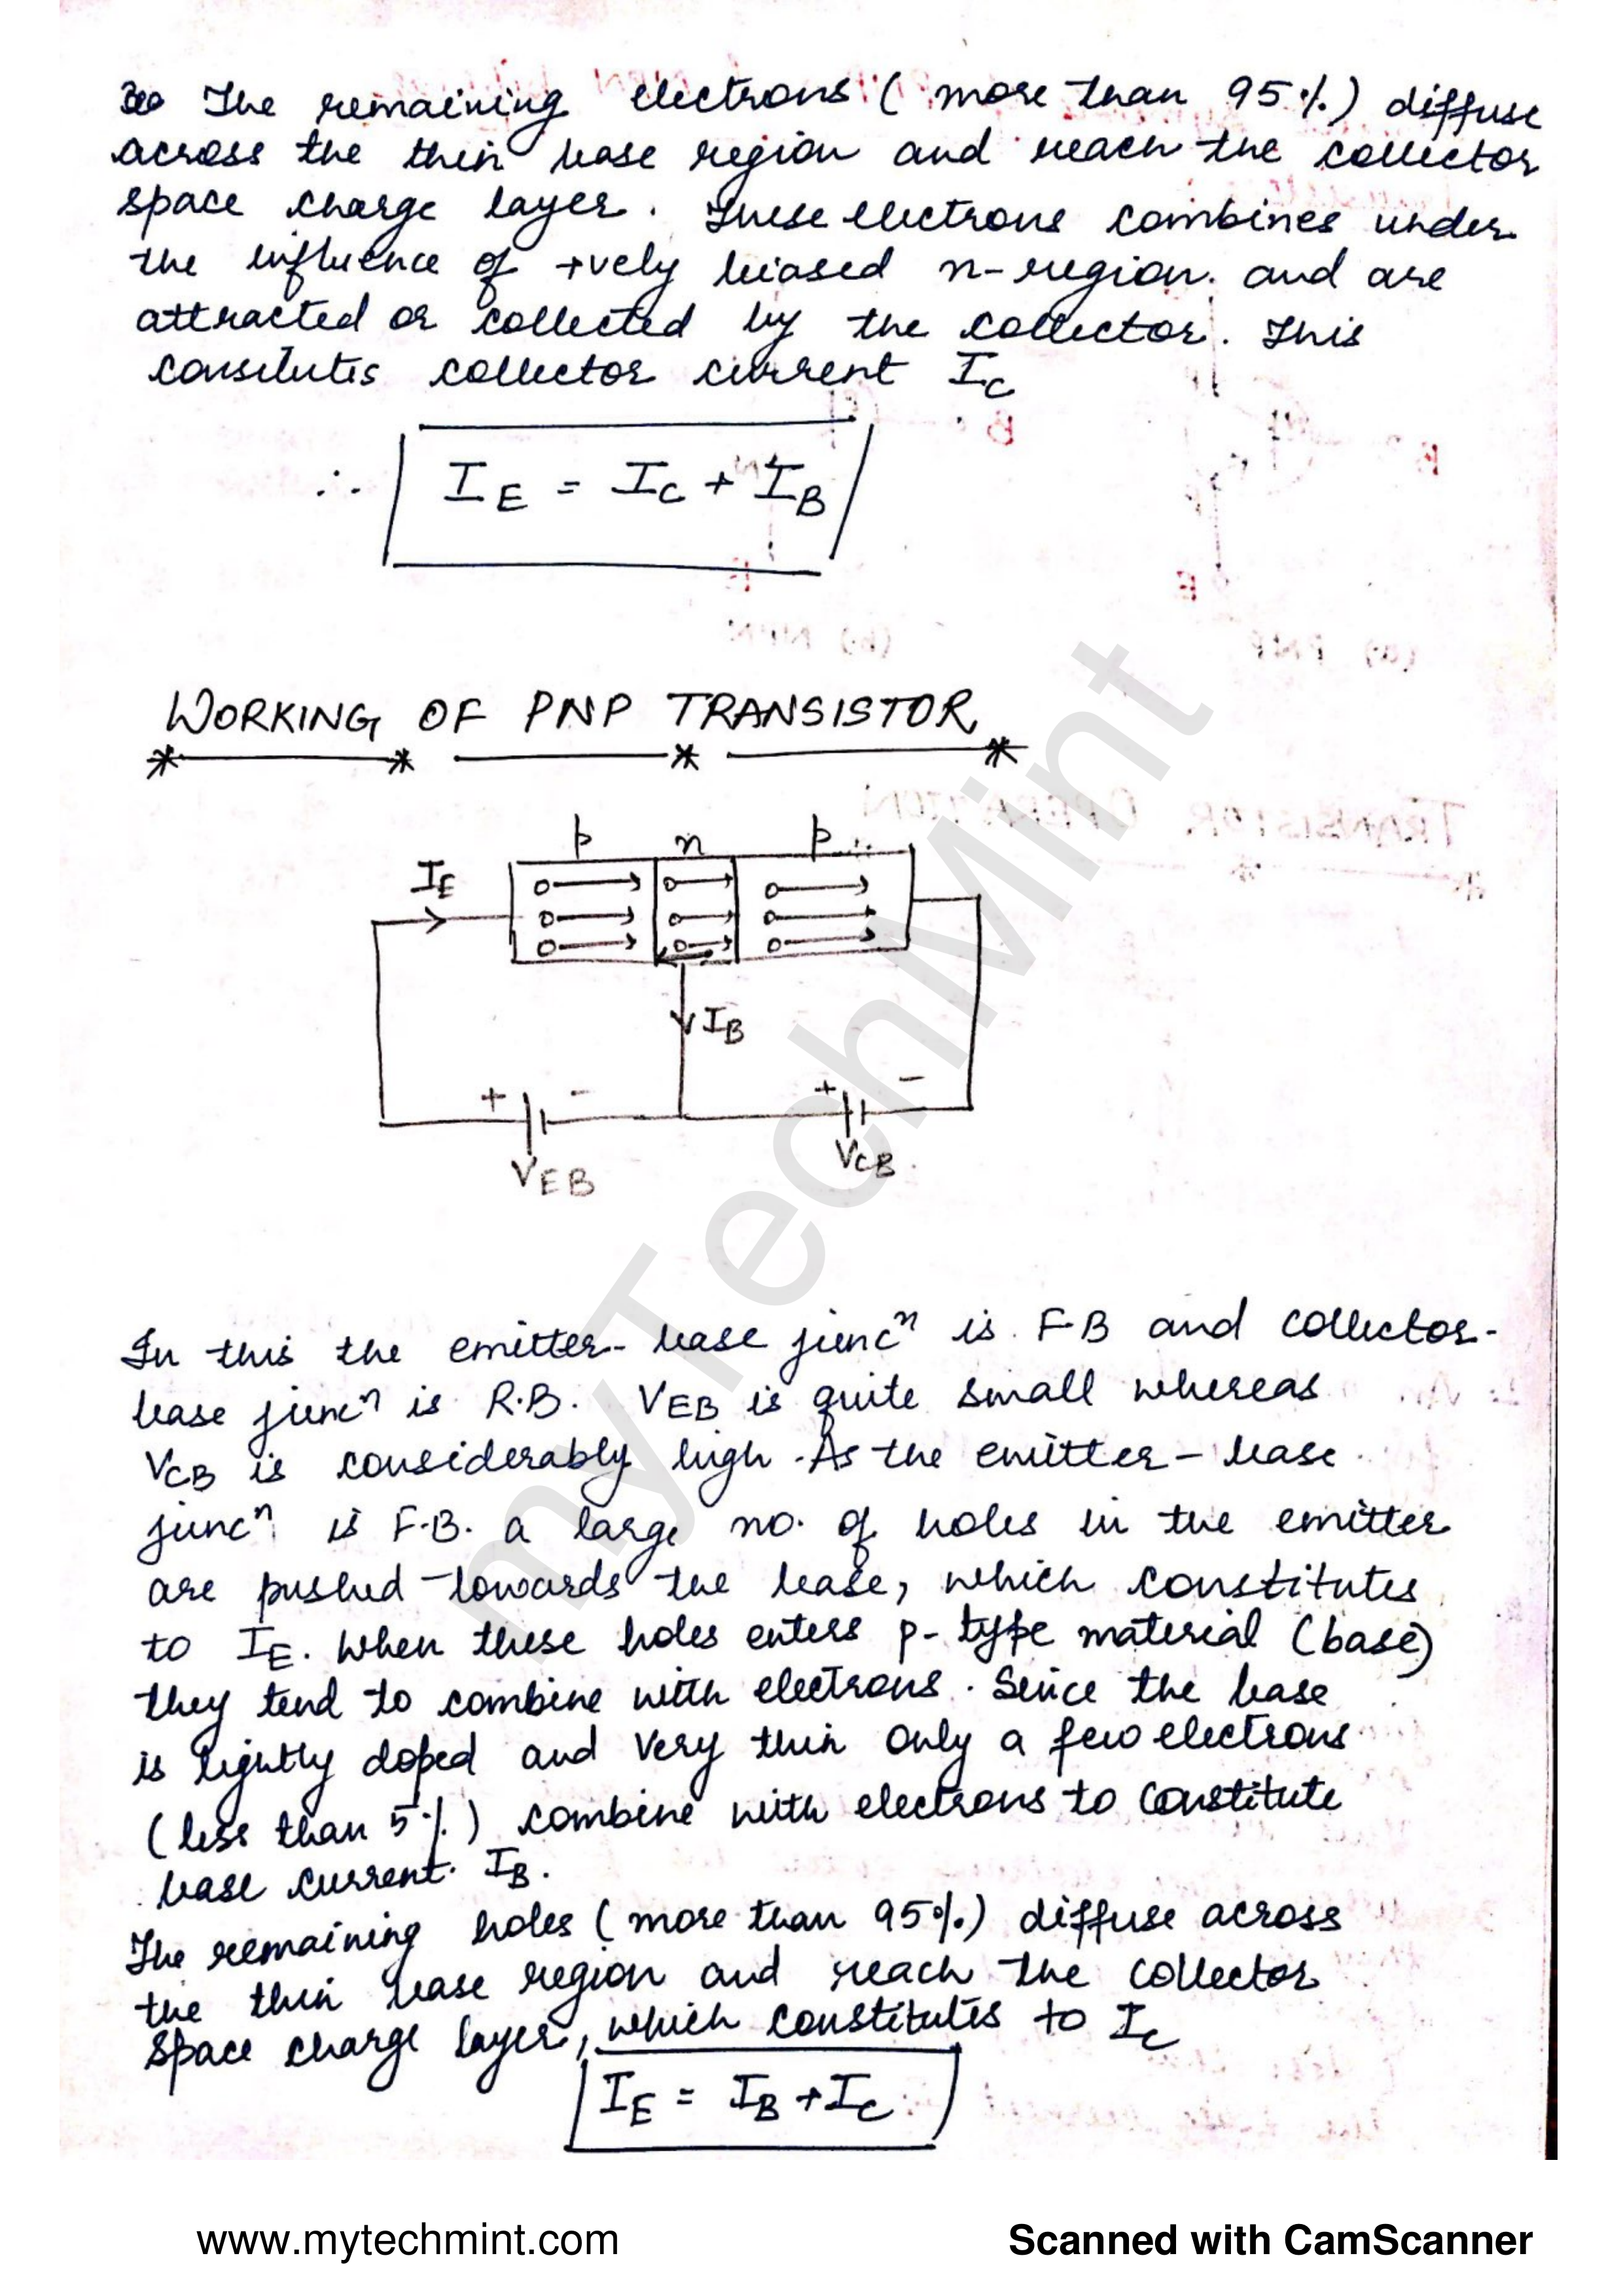 The remaining electrons (more than 95%) diffuse
across the thin base region and reach the collector
space charge layer. These electrons combines under
the influence of +vely biased n-region. and are
attracted or collected by the collector. This
consitutes collector current IC
∴ IE = IC + IB
WORKING OF PNP TRANSISTOR
p n p
IE
IB
+ - + -
VEB VCB
In this the emitter-base juncⁿ is F.B and collector-
base juncⁿ is R.B. VEB is quite small whereas
VCB is considerably high. As the emitter-base
juncⁿ is F.B. a large no. of holes in the emitter
are pushed towards the base, which constitutes
to IE. When these holes enters p-type material (base)
they tend to combine with electrons. Since the base
is lightly doped and very thin only a few electrons
(less than 5%) combine with electrons to constitute
base current IB.
The remaining holes (more than 95%) diffuse across
the thin base region and reach the collector
space charge layer, which constitutes to IC
IE = IB + IC
myTechMint
www.mytechmint.com Scanned with CamScanner